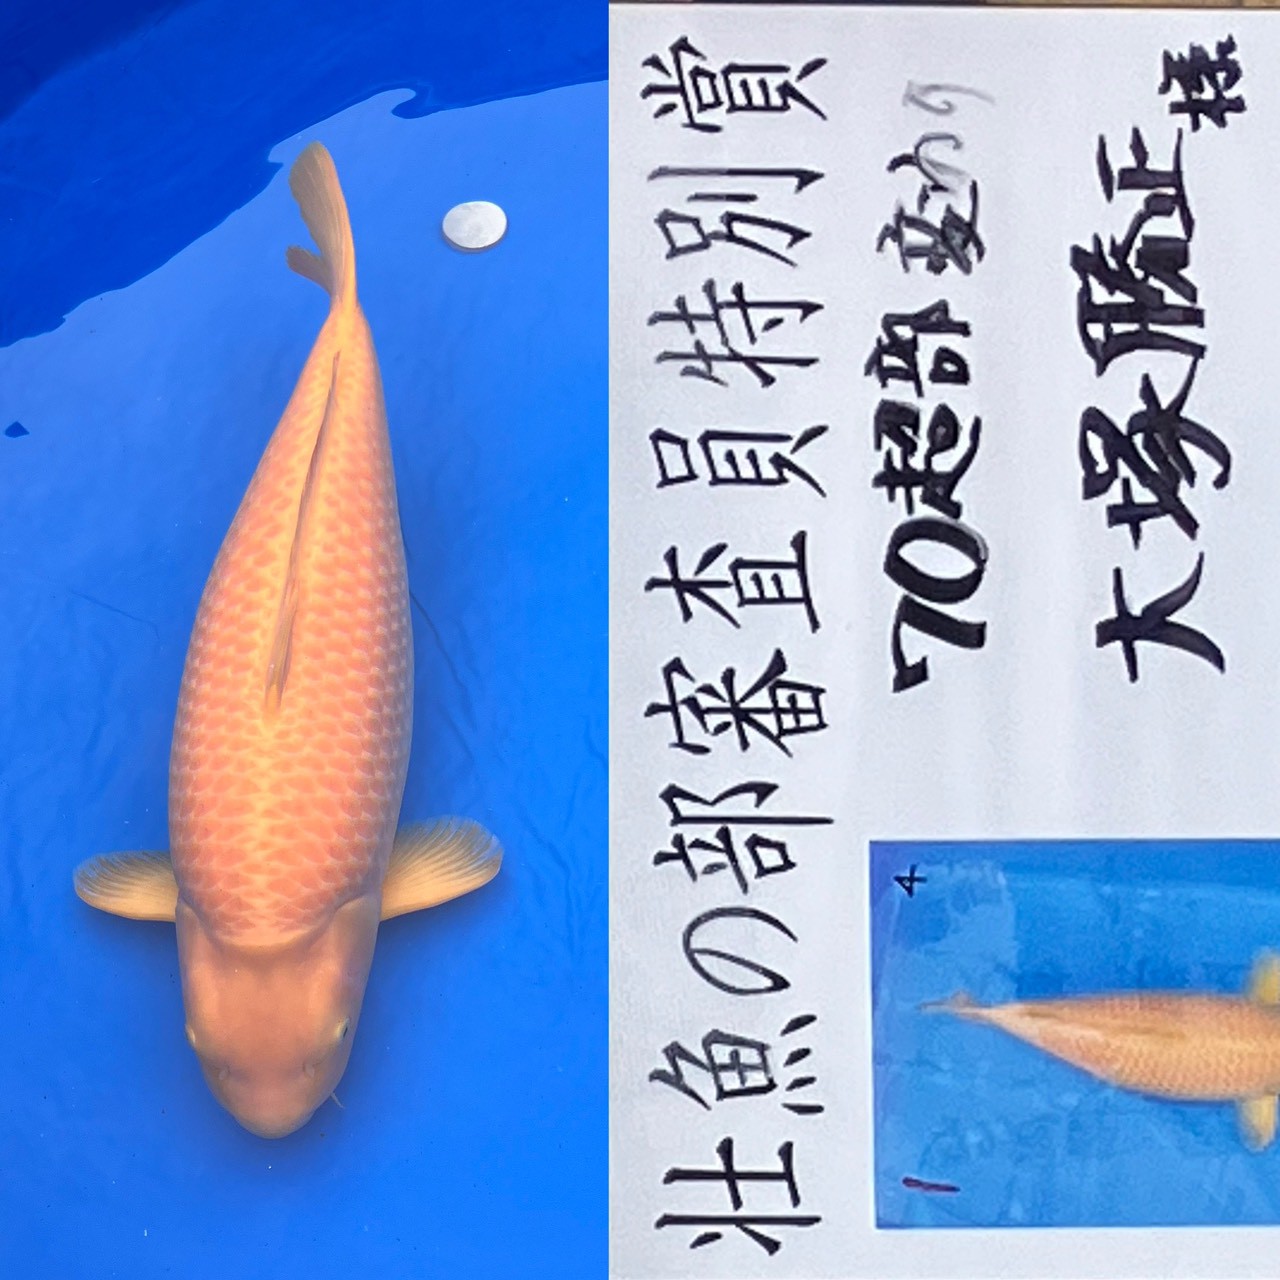 壮魚の部審査員特別賞
70超部 変わり
大塚勝正 様
4